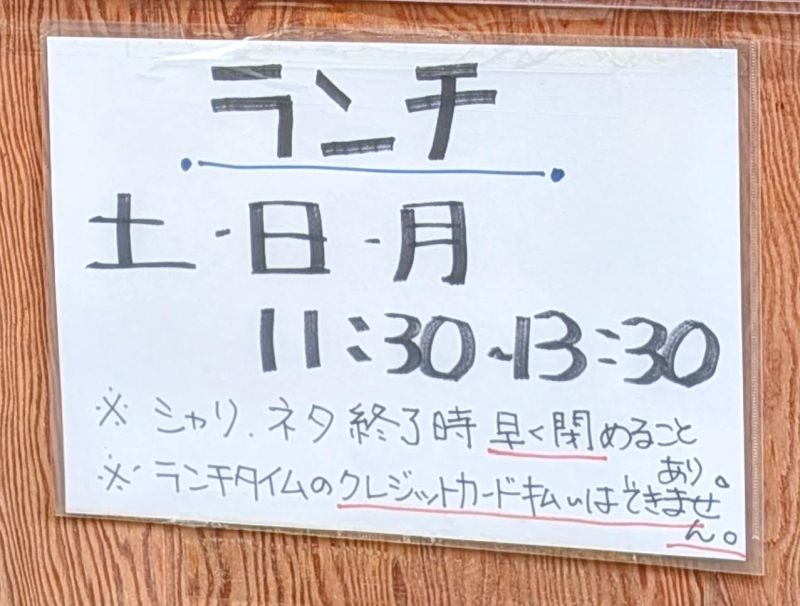 ランチ
土・日・月
11:30~13:30
※ シャリ、ネタ終了時早く閉めること
あり。
※ ランチタイムのクレジットカード払いはできませ
ん。